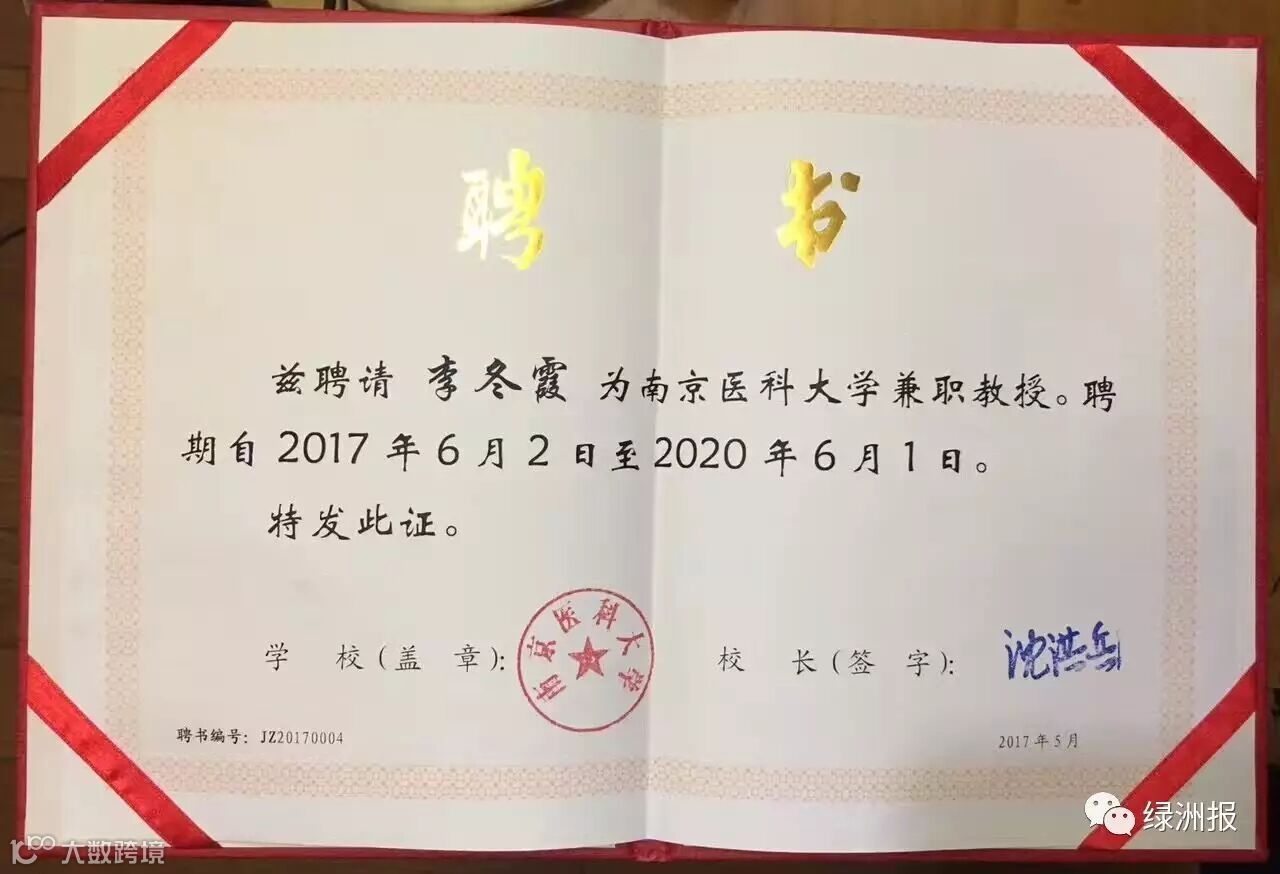 聘 书
兹聘请 李冬霞 为南京医科大学兼职教授。聘
期自 2017 年 6 月 2 日至 2020 年 6 月 1 日。
特发此证。
学 校(盖 章):
南京医科大学
校 长(签 字):
沈洪兵
聘书编号: JZ20170004
2017 年 5 月
绿洲报
大数跨境